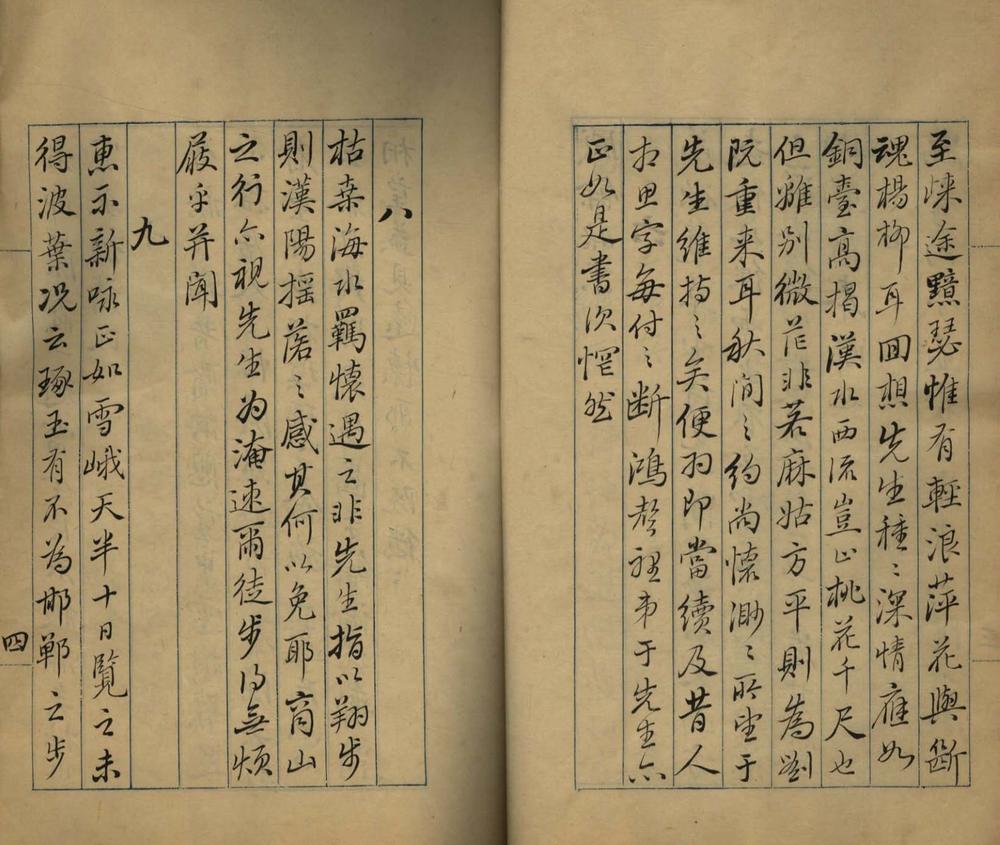 至悚途黯瑟惟有輕浪萍花與斷
魂楊柳耳回想先生種〻深情應如
銅臺高揭漢水西流豈止桃花千尺也
但離別微茫非若麻姑方平則為劉
阮重来耳秋間之約尚懷渺〻所望于
先生維持之矣便羽即當續及昔人
相思字每付之斷鴻聲裡弟于先生亦
正如是書次惘然
八
枯桑海水羈懷遇之非先生指以翔步
則漢陽搖落之感其何以免耶商山
之行亦視先生為淹速爾徒步得無煩
屐乎并聞
九
惠示新咏正如雪峨天半十日覽之未
得波葉况云琢玉有不為邯鄲之步
四